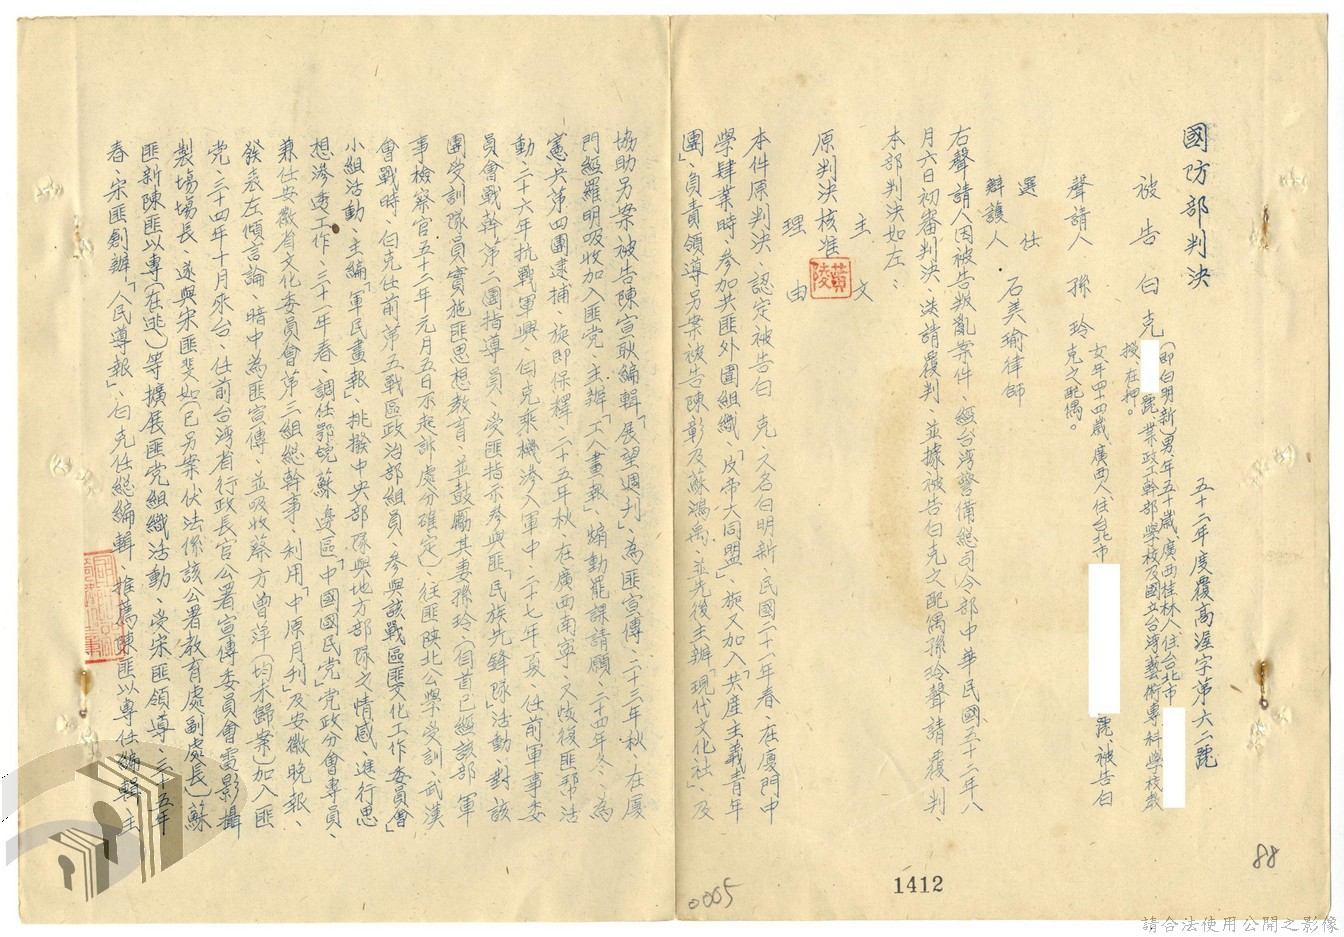 國防部判決
五十二年度覆高淫字第六二號
被告 白克
(即白明新)男年五十歲、廣西桂林人住台北市
號業政工幹部學校及國立台灣藝術專科學校教
授、在押。
聲請人 孫玲
女年四十四歲廣西人住台北市 號、被告白
克之配偶。
選任
辯護人
石美瑜律師
右聲請人因被告叛亂案件、經台湾警備總司令部中華民國五十二年八
月六日初審判決、送請覆判、並據被告白克之配偶孫玲聲請覆判、
本部判決如左：
主文
原判決核准
黃陵
理由
本件原判決、認定被告白克、又名白明新、民國二十一年春、在廈門中
學肄業時、參加共匪外圍組織「反帝大同盟」、旋又加入「共產主義青年
團」、負責領導另案被告陳彰及蘇鴻禹、並先後主辦「現代文化社」、及
協助另案被告陳宣耿編輯「展望週刋」、為匪宣傳、二十三年秋、在廈
門經羅明吸收加入匪党、主辦「工人畫報」、煽動罷課請願、二十四年冬、為
憲兵第四團逮捕、旋即保釋、二十五年秋、在廣西南寧、又恢復匪帮活
動、二十六年抗戰軍興、白克乘機滲入軍中、二十七年夏、任前軍事委
員會戰幹第二團指導員、受匪指示参與匪「民族先鋒隊」活動、對該
團受訓隊員實施匪思想教育、並鼓勵其妻孫玲、(自首已經該部軍
事檢察官五十二年元月五日不起訴處分確定)、往匪陝北公學受訓、武漢
會戰時、白克任前第五戰區政治部組員、参與該戰區匪「文化工作委員會」
小組活動、主編「軍民畫報」、挑撥中央部隊與地方部隊之情感、進行思
想滲透工作、三十一年春、調任鄂皖蘇邊區「中國國民党」党政分會專員、
兼任安徽省文化委員會第三組總幹事、利用「中原月刋」及安徽晚報、
發表左傾言論、暗中為匪宣傳、並吸收蔡方曾洋(均未歸案)加入匪
党、三十四年十月來台、任前台湾省行政長官公署宣傳委員會電影攝
製塲塲長、遂與宋匪斐如(已另案伏法係該公署教育處副處長)蘇
匪新陳匪以專(在逃)等擴展匪党組織活動、受宋匪領導、三十五年
春、宋匪創辦「人民導報」、白克任總編輯、推薦陳匪以專任編輯主
1412
0005
88
請合法使用公開之影像